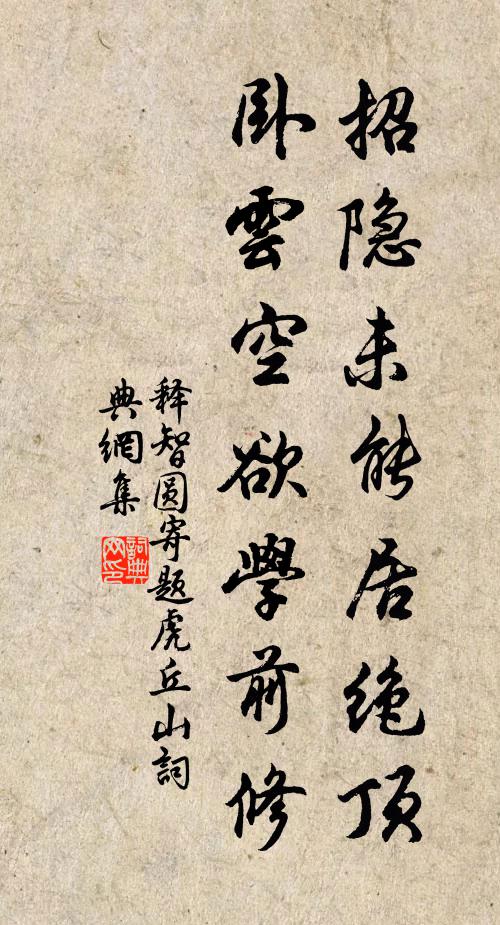 招隐未能居绝顶
卧雲空欲學前修
释智圆寄题虎丘山詞
典網集
詞典网印